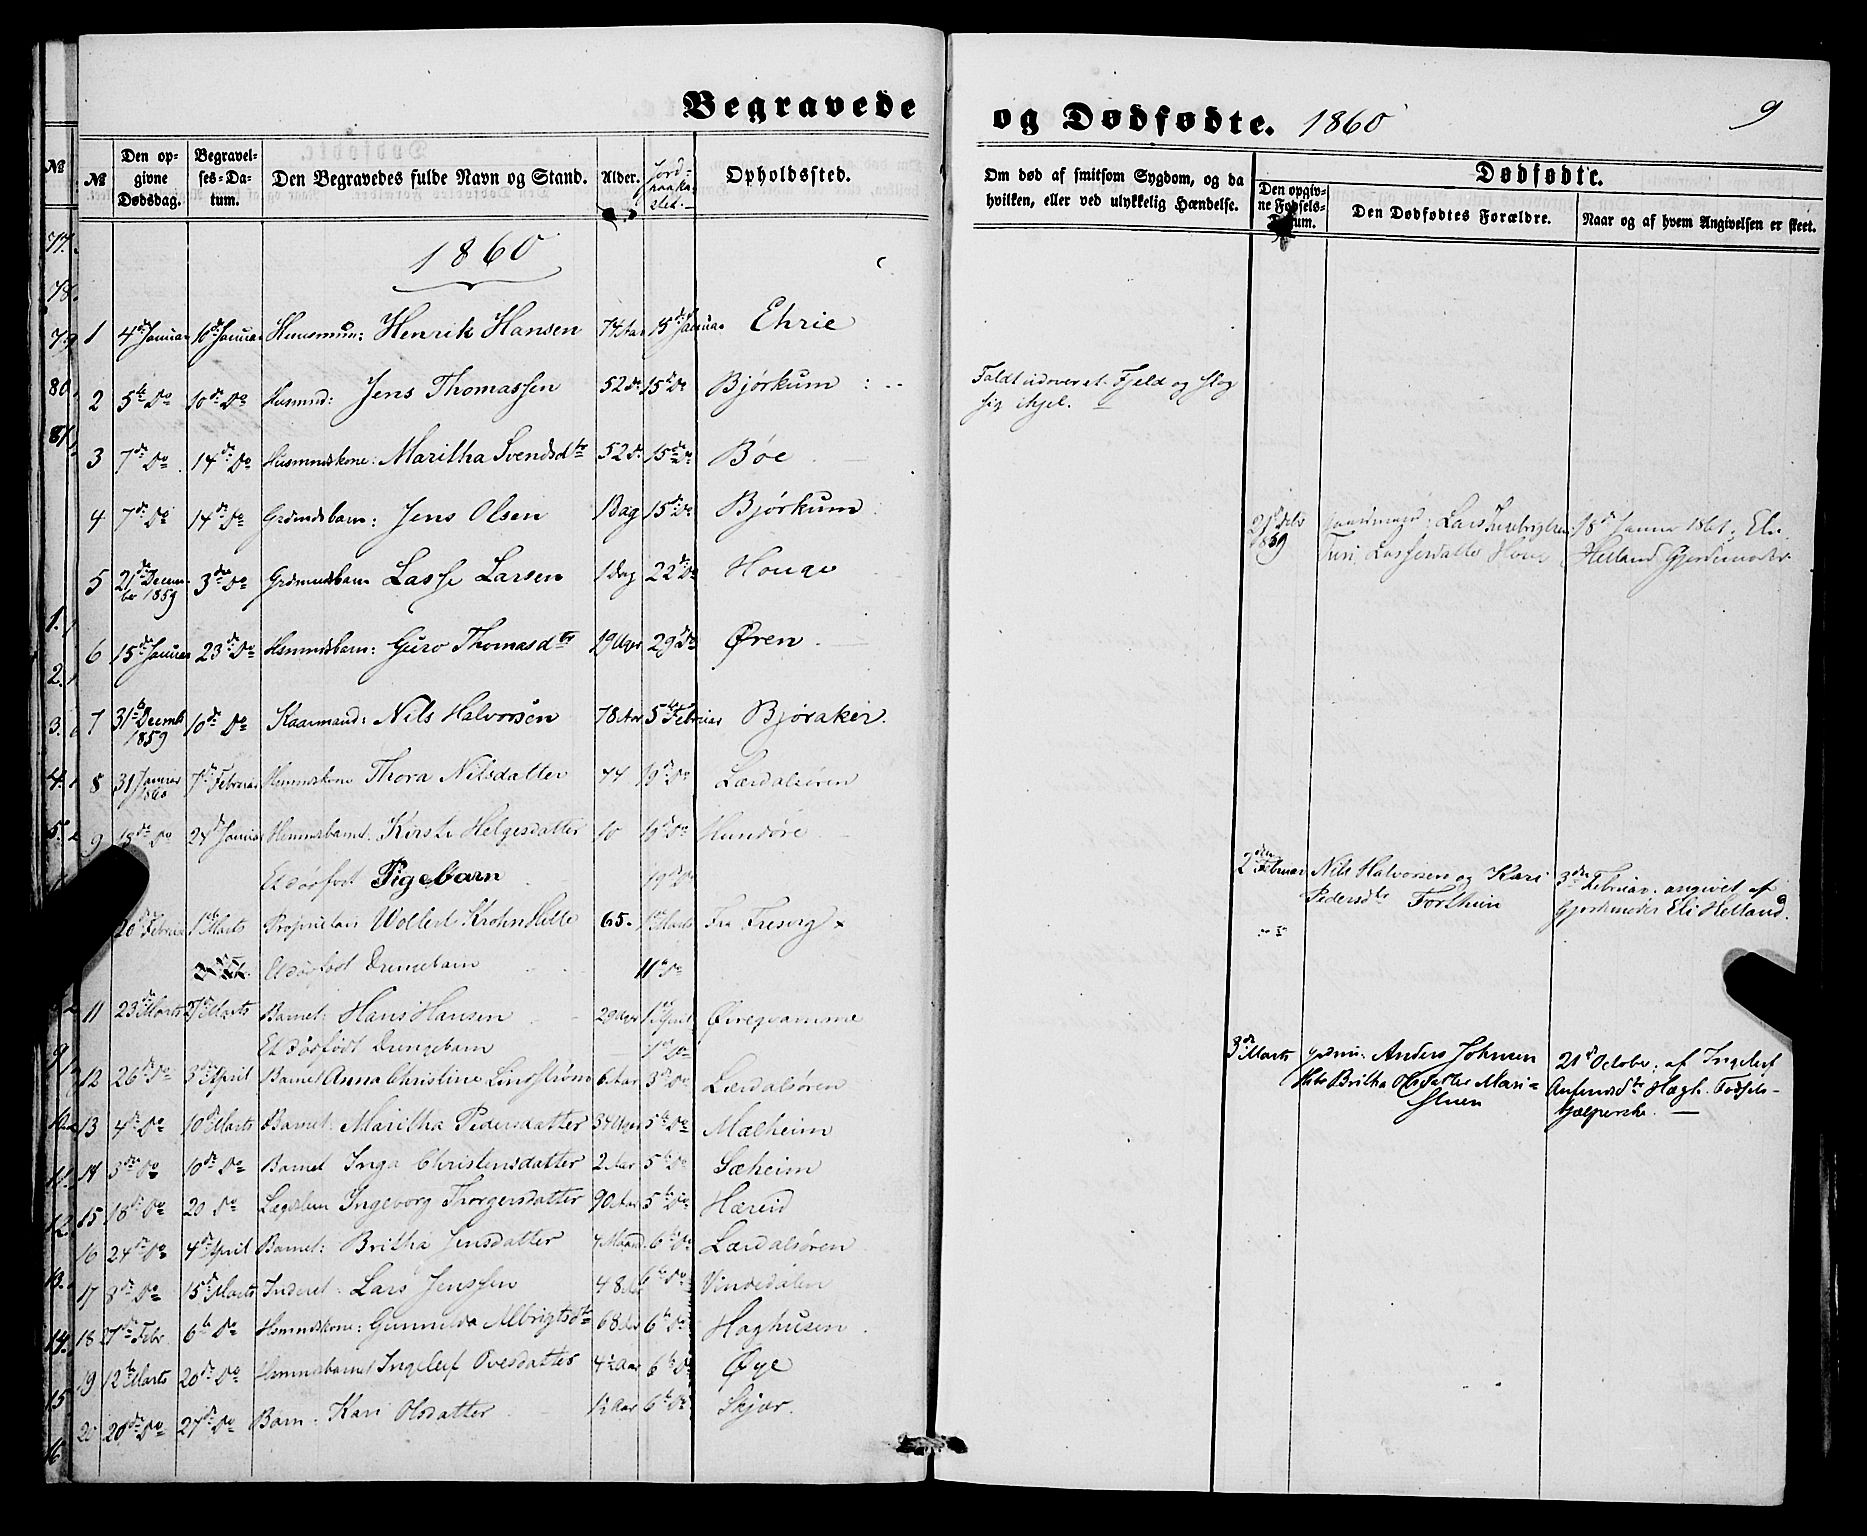 Begravede
og Dødfødte. 1860
9
№
№ Den opgivne Dødsdag. Begravelses-Datum. Den Begravedes fulde Navn og Stand. Alder. Opholdssted.
Om død af smitsom Sygdom, og da hvilken, eller ved ulykkelig Hændelse.
Dødfødte.
Den opgivne Fødsels-Datum. Den Dødfødtes Forældre. Naar og af hvem Angivelsen er skeet.
1860
1 4de Januar 10de Januar Huusmnd: Henrik Hansen 74 Aar 15de Januar Ehrie
2 5te Do 10de Do Husmnd: Jens Thomassen 52 Do 15de Do Bjørkum
Faldt udover et Fjeld og slog
sig ihjel.
3 7de Do 14de Do Husmndskone: Maritha Svendsdtr 52 Do 15de Do Bøe
4 7de Do 14de Do Grdmndsbarn: Jens Olsen 1 Dag 15de Do Bjørkum
5 21de Decem- 3die Do Grdmndsbarn Lasse Larsen 1 Dag 22de Do Houge
ber 1859
21de
1859
Lars
Januar 1861, Eli
Lassesdatter Houg Helland Gjordemoder
6 15de Januar 23de Do Husmndsbarn: Guro Thomasdtr 19 Uger 29de Do Øren
7 31te Decemb 10de Do Kaarmand: Nils Halvorsen 78 Aar 5te Februar Bjøraker
1859
8 31 Januar 7de Februar Husmndskone Thora Nilsdatter 44 19de Do Lærdalsøren
1860
9 18de Do 24de Januar Kirsti Helgesdatter 10 19de Do
Et dødfødt Pigebarn 19de Do
2den Februar Nils Halvorsen og Kari 3die Februar angivet af
Pedersdtr Forthun Gjordemoder Eli Helland.
20de Februar 1ste Marts Proprietair Wollert Krohn 65. 1ste Marts Fra Fresvig
Et dødfødt Drengebarn 11te Do
11 23de Marts 27de Marts Barnet: Hans Hansen 29 Uger 1ste April Øvreqvamme
Et dødfødt Drengebarn 1ste Do
3die Marts Anders Johnsen 21de October, af Ingeleif
Britha Olsdatter Mari- Hægh. Fødsels-
stuen hjælperske.
12 26de Do 3die April Barnet Anna Christine Lindstrøm 6 Aar 3die Do Lærdalsøren
13 4de Do 10de Marts Barnet: Maritha Pedersdatter 34 Uger 5te Do Mælheim
14 3die Do 10de Do Barnet Inga Christensdatter 2 Aar 5te Do Sæheim
15 18de Do 20 Do Ingeborg Thorgersdatter 90 Aar 5te Do Hæreid
16 24de Do 4de April Barnet: Britha Jensdatter 4 Maand. 6te Do Lærdalsøren
17 8de Do 15de Marts Inderst: Lars Jenssen 48 Aar 6te Do Vindedalen
18 27de Febr 6te Do Husmndskone: Gunnilda Albrigtsdtr 68 Aar 6te Do Haghusen
19 12te Marts 20de Do Husmndsbarnet Ingeleif Ovesdatter 4½ Aar 6te Do Øye
20 20de Do 27de Do Barn: Kari Olsdatter 1½ Aar 6te Do Skjær